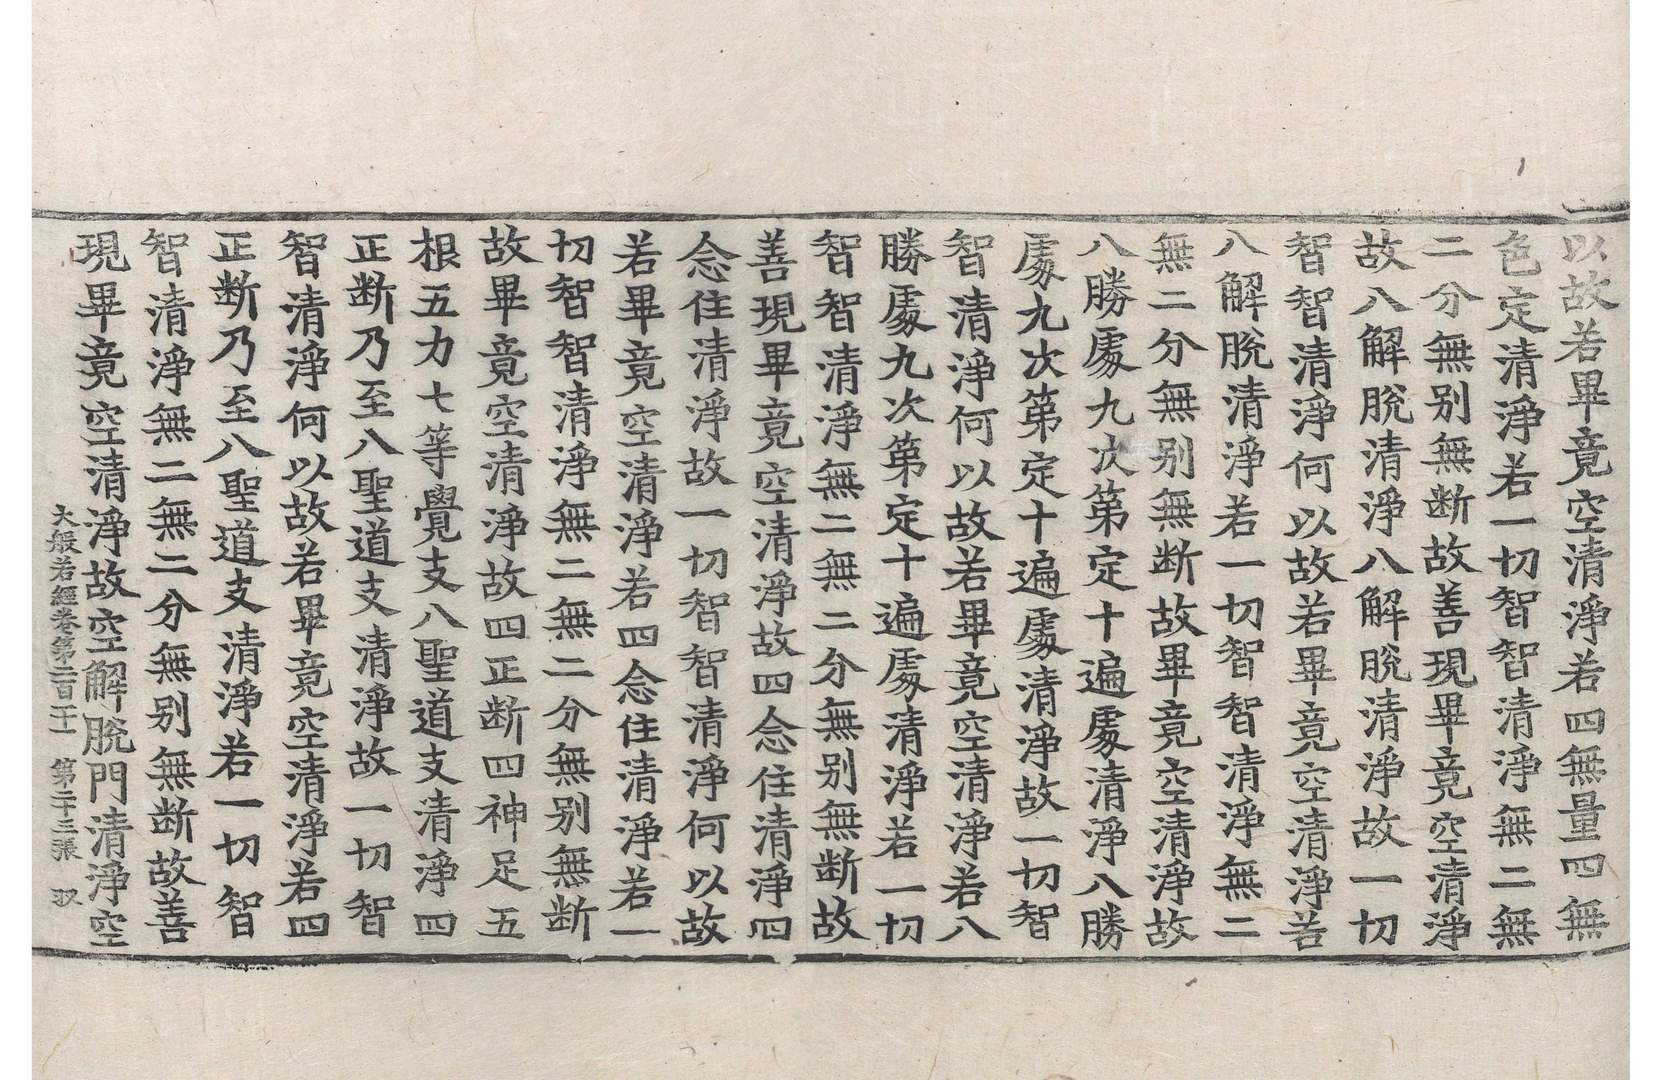 以故若畢竟空清淨若四無量四無
色定清淨若一切智智清淨無二無
二分無别無断故善現畢竟空清淨
故八解脫清淨八解脫清淨故一切
智智清淨何以故若畢竟空清淨若
八解脫清淨若一切智智清淨無二
無二分無别無断故畢竟空清淨故
八勝處九次第定十遍處清淨八勝
處九次第定十遍處清淨故一切智
智清淨何以故若畢竟空清淨若八
勝處九次第定十遍處清淨若一切
智智清淨無二無二分無别無断故
善現畢竟空清淨故四念住清淨四
念住清淨故一切智智清淨何以故
若畢竟空清淨若四念住清淨若一
切智智清淨無二無二分無别無断
故畢竟空清淨故四正断四神足五
根五力七等覺支八聖道支清淨四
正断乃至八聖道支清淨故一切智
智清淨何以故若畢竟空清淨若四
正断乃至八聖道支清淨若一切智
智清淨無二無二分無别無断故善
現畢竟空清淨故空解脫門清淨空
大般若經卷第二百 第二十三張